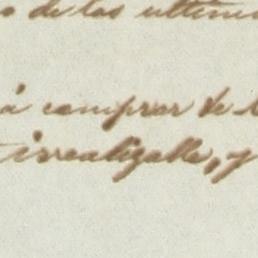 o de las ultim
á comprar de l
irrealizable, y